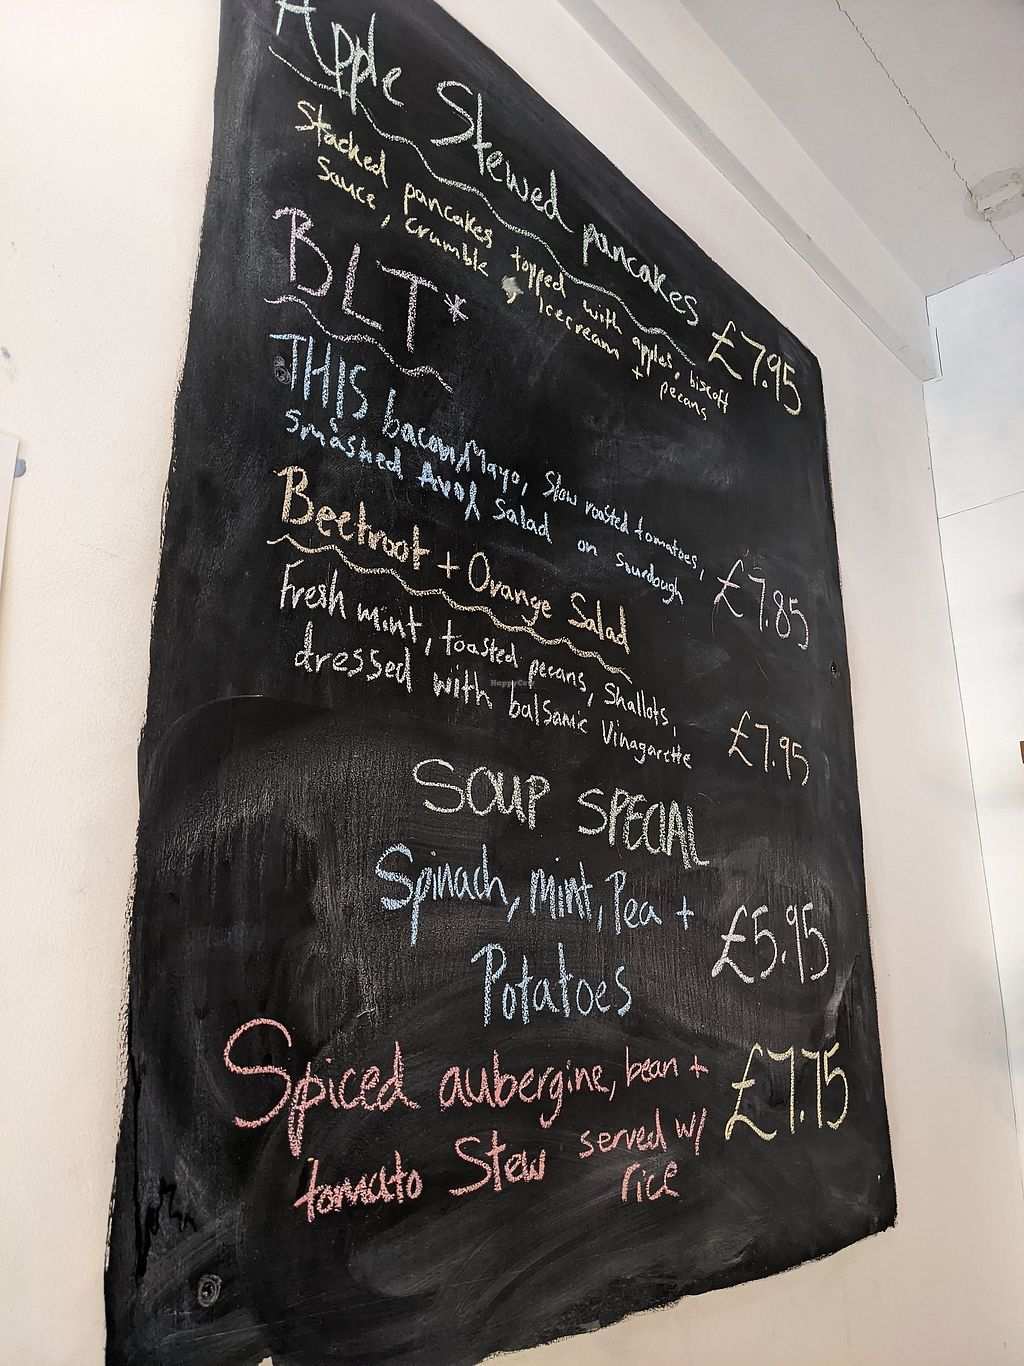 Apple Stewed pancakes £7.95
Stacked pancakes topped with apples, biscoff
sauce, crumble, icecream + pecans
BLT*
THIS bacon, Mayo, Slow roasted tomatoes,
smashed Avo, Salad on sourdough £7.85
Beetroot + Orange Salad
Fresh mint, toasted pecans, Shallots,
dressed with balsamic Vinagarette £7.95
SOUP SPECIAL
Spinach, mint, Pea +
Potatoes £5.95
Spiced aubergine, bean +
tomato Stew served w/
rice £7.75
HappyCow